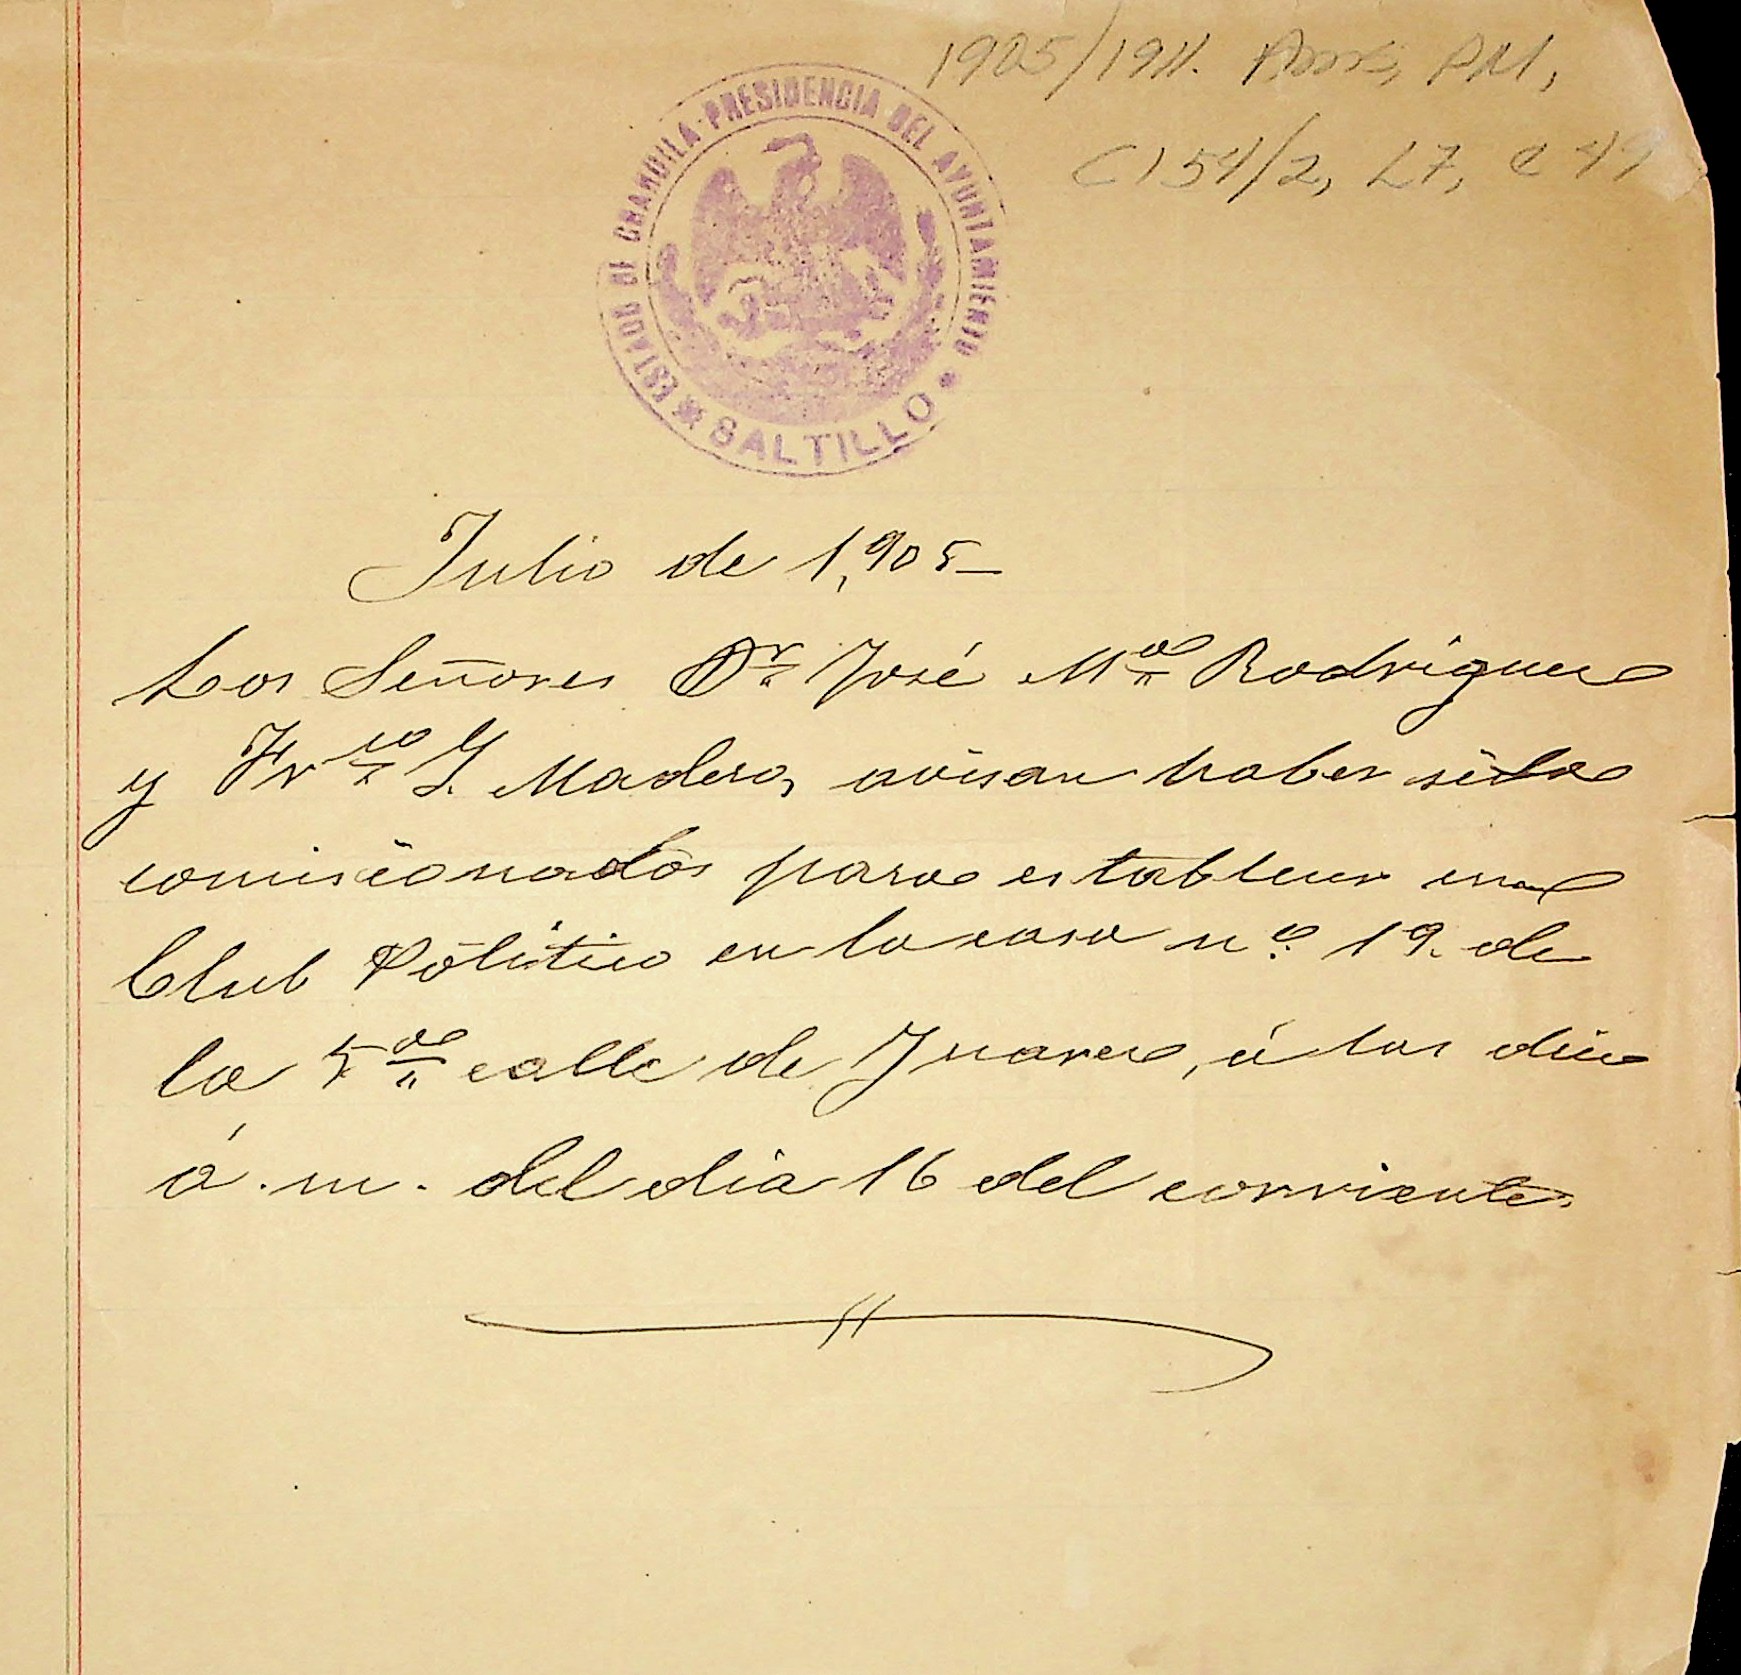 1905/1911. PM,
C 154/2, L7, e 49
ESTADO DE COAHUILA · PRESIDENCIA DEL AYUNTAMIENTO
SALTILLO
Julio de 1,905
Los Señores Dr. José Ma. Rodriguez
y Frco. I. Madero, avisan haber sido
comisionados para establecer un
Club Político en la casa no. 19. de
la 5a. calle de Juarez, á las diez
á. m. del dia 16 del corriente.